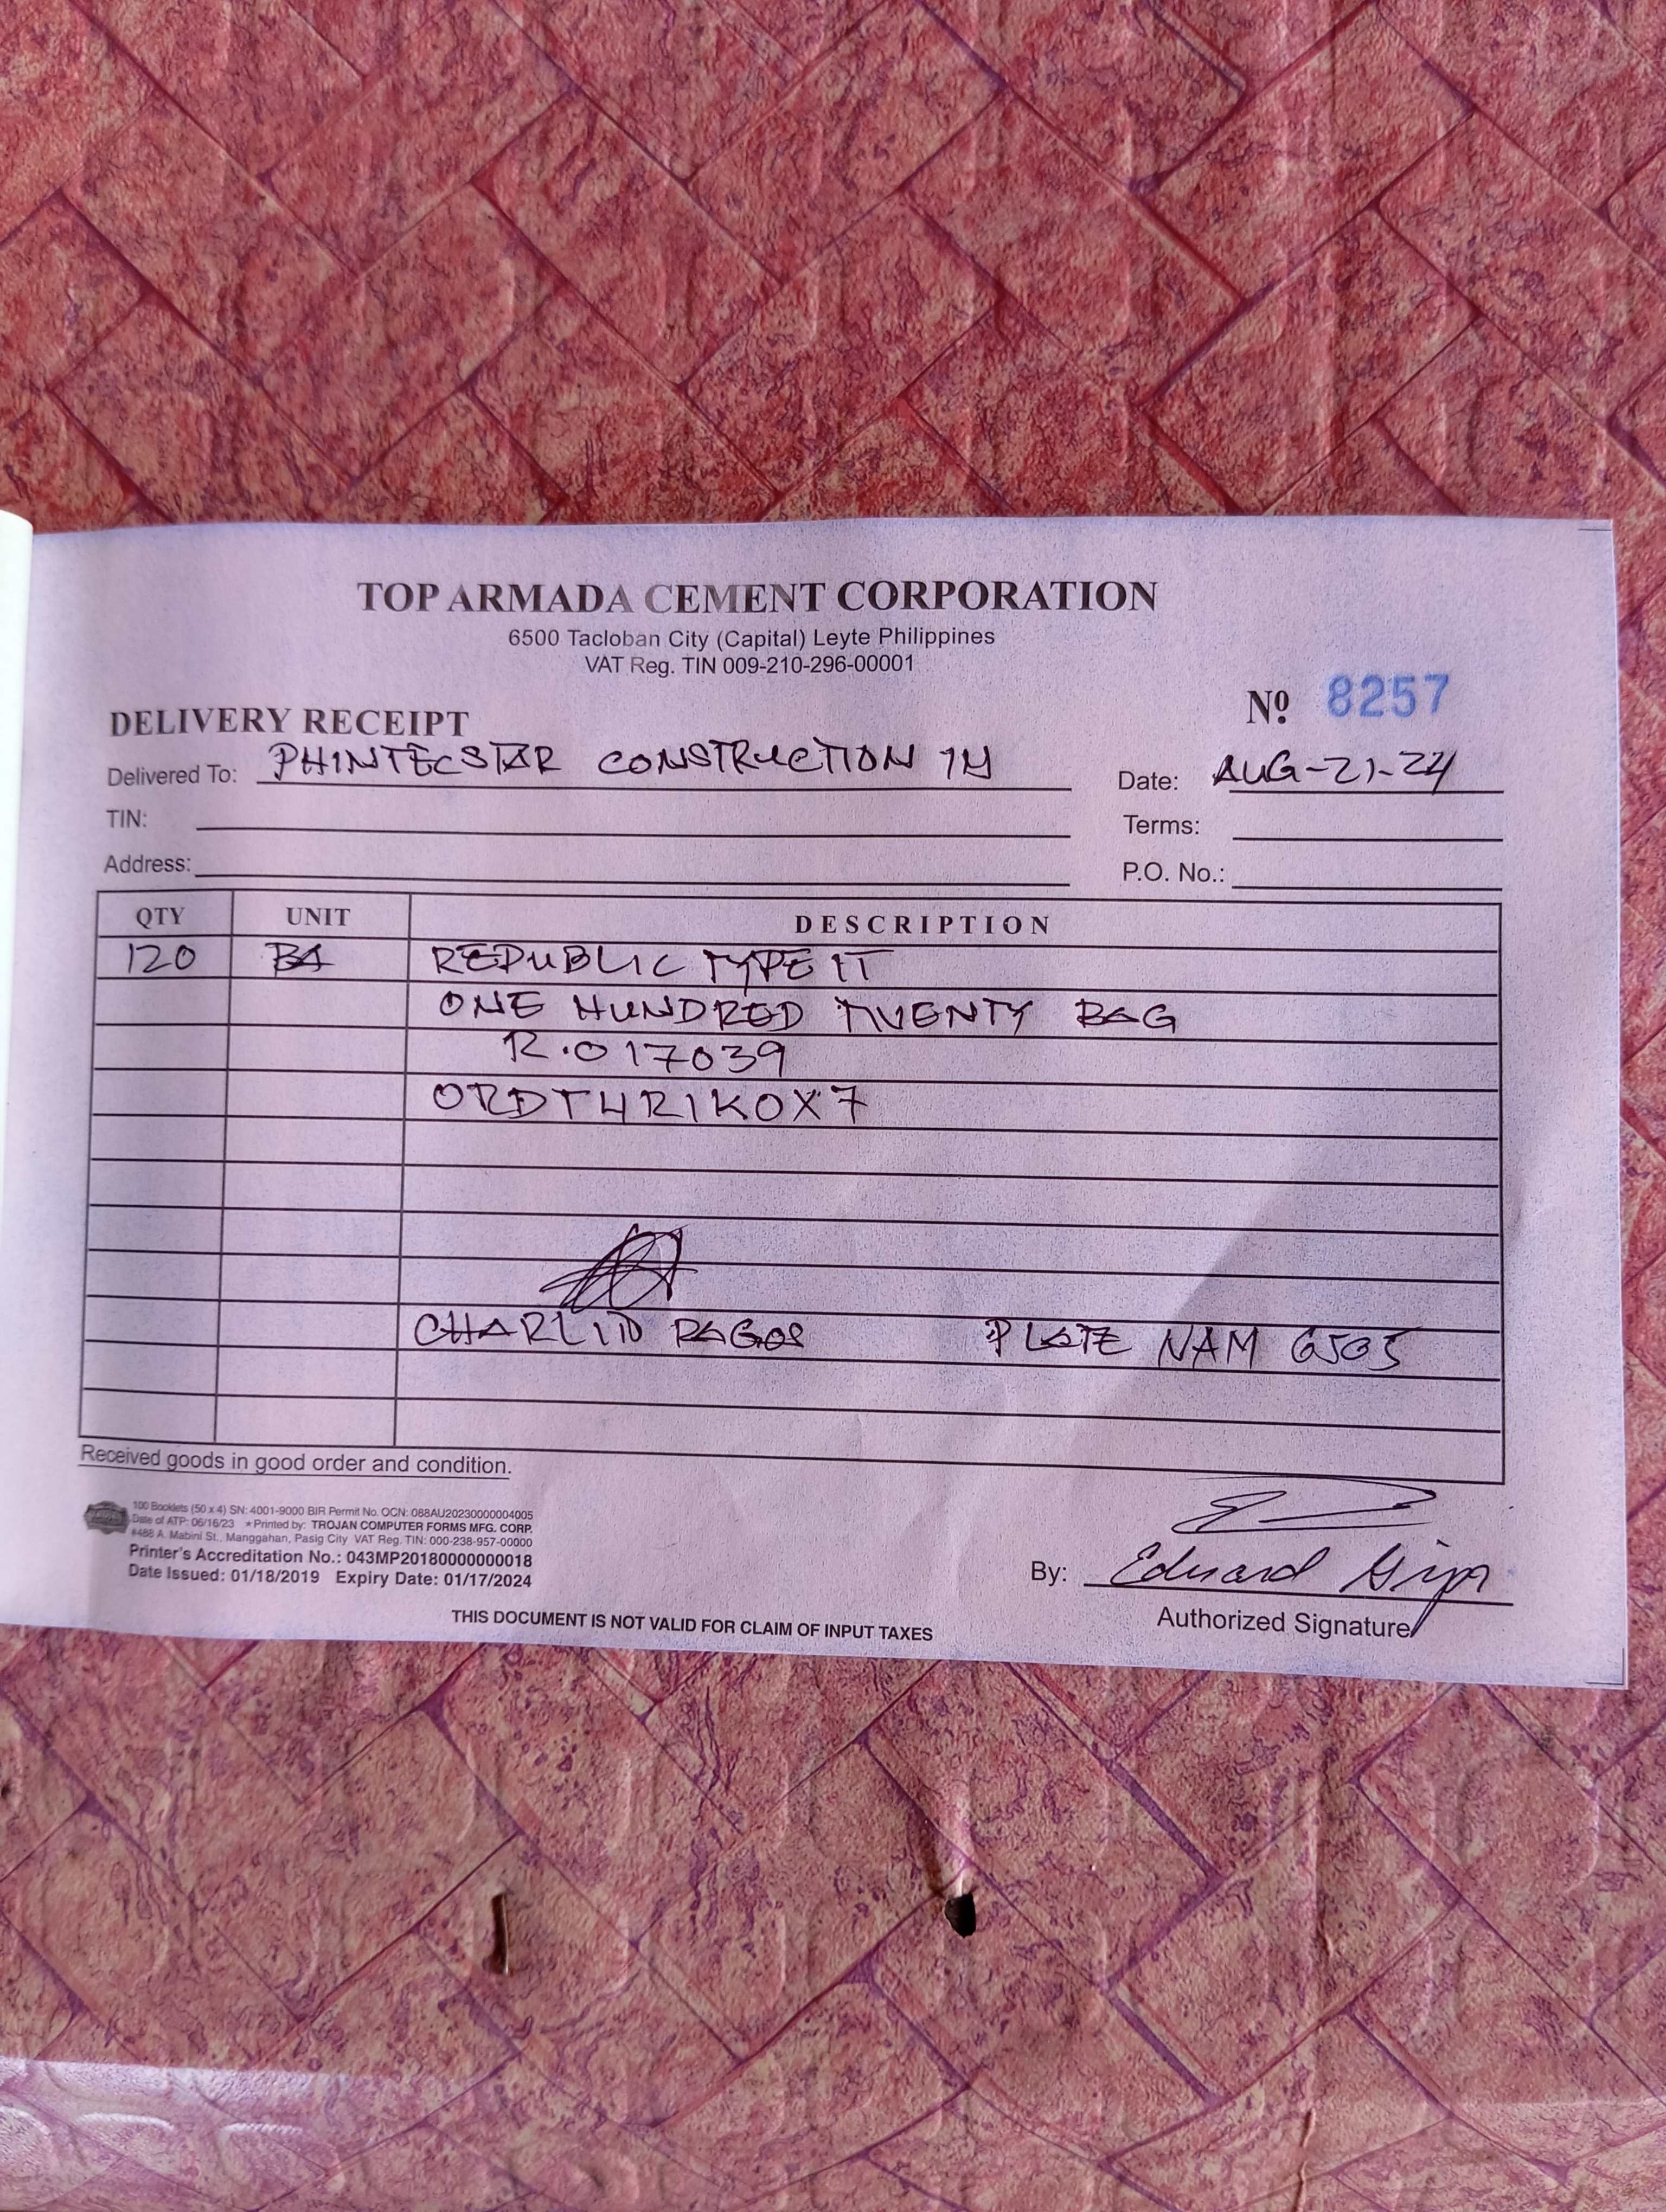 TOP ARMADA CEMENT CORPORATION
6500 Tacloban City (Capital) Leyte Philippines
VAT Reg. TIN 009-210-296-00001
Nº 8257
DELIVERY RECEIPT
Delivered To: PHINTECSTAR CONSTRUCTION IN
Date: AUG-21-24
TIN:
Terms:
Address:
P.O. No.:
QTY UNIT DESCRIPTION
120 BA REPUBLIC TYPE IT
ONE HUNDRED TWENTY BAG
R.017039
ORDTHRIKOX7
CHARLID PAGOS PLATE NAM 6505
Received goods in good order and condition.
100 Booklets (50 x 4) SN: 4001-9000 BIR Permit No. OCN: 088AU20230000004005
Date of ATP: 06/16/23 ★Printed by: TROJAN COMPUTER FORMS MFG. CORP.
#488 A. Mabini St., Manggahan, Pasig City VAT Reg. TIN: 000-238-957-00000
Printer's Accreditation No.: 043MP20180000000018
Date Issued: 01/18/2019 Expiry Date: 01/17/2024
By: Eduard
Authorized Signature
THIS DOCUMENT IS NOT VALID FOR CLAIM OF INPUT TAXES